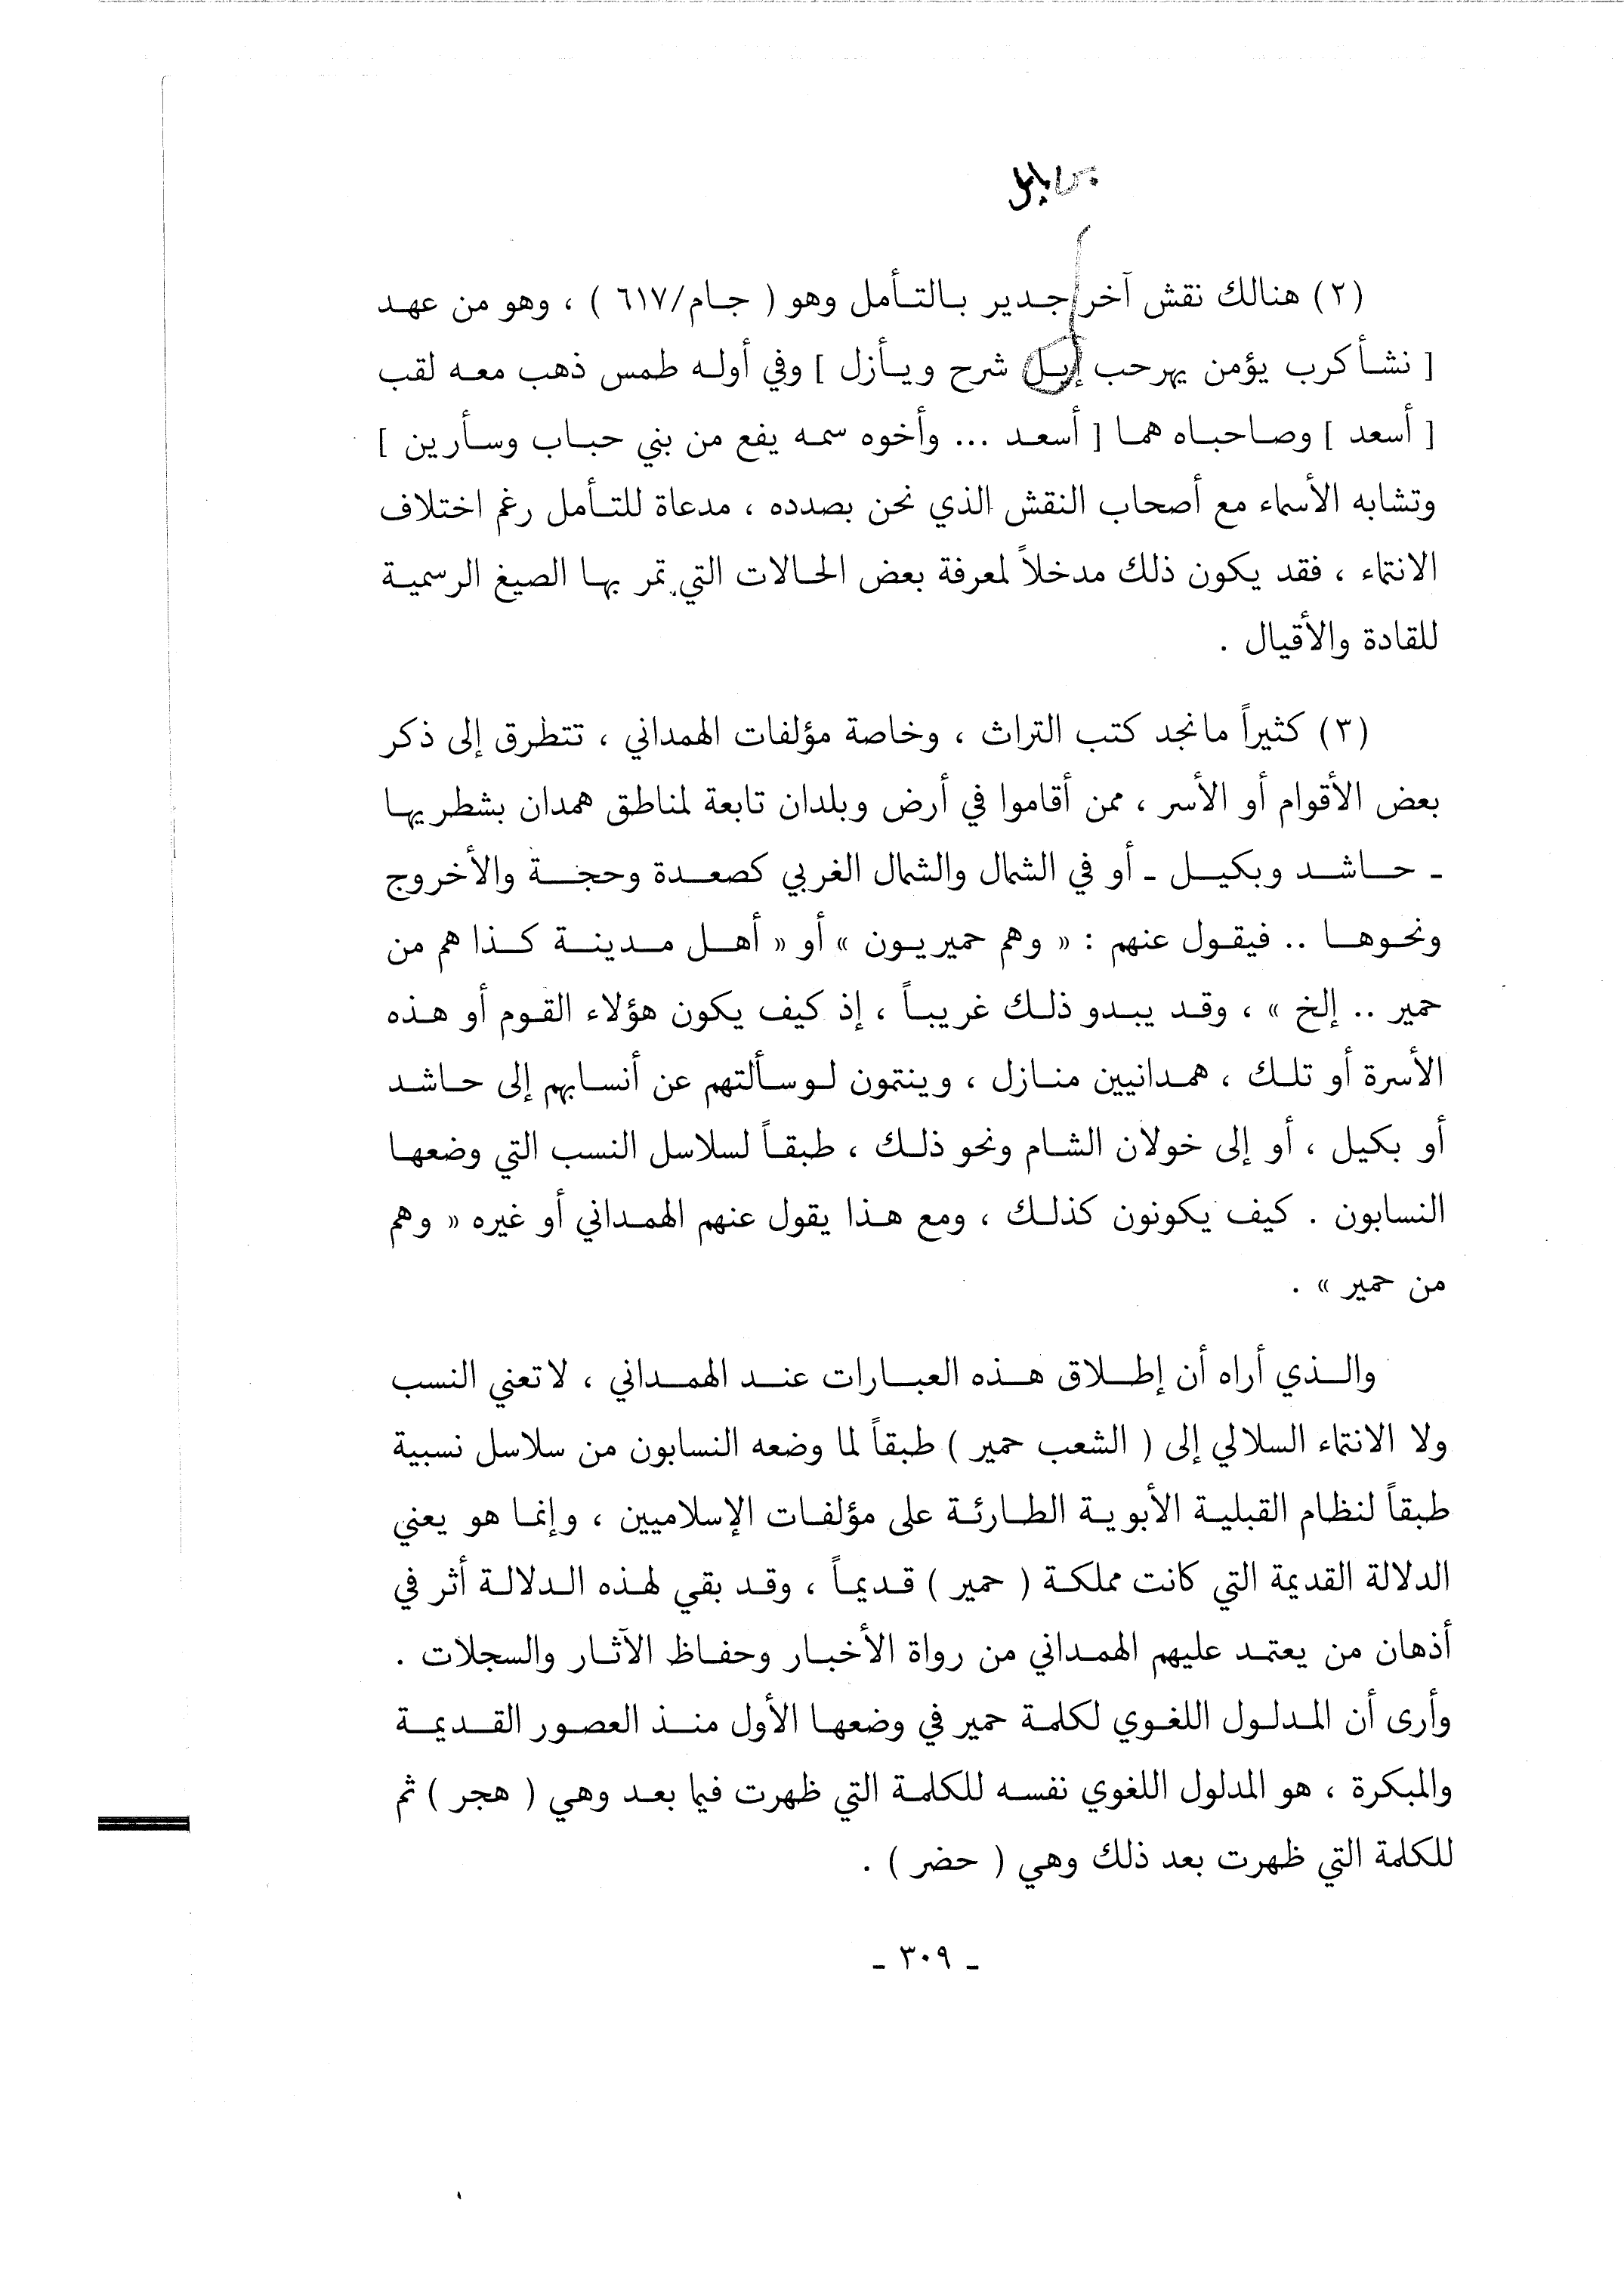 (٢) هنالك نقش آخر جدير بالتأمل وهو ( جام/٦١٧ ) ، وهو من عهد
[ نشأكرب يؤمن يهرحب إيل شرح ويأزل ] وفي أوله طمس ذهب معه لقب
[ أسعد ] وصاحباه هما [ أسعد ... وأخوه سمه يفع من بني حباب وسأرين ]
وتشابه الأسماء مع أصحاب النقش الذي نحن بصدده ، مدعاة للتأمل رغم اختلاف
الانتماء ، فقد يكون ذلك مدخلاً لمعرفة بعض الحالات التي تمر بها الصيغ الرسمية
للقادة والأقيال .
(٣) كثيراً مانجد كتب التراث ، وخاصة مؤلفات الهمداني ، تتطرق إلى ذكر
بعض الأقوام أو الأسر ، ممن أقاموا في أرض وبلدان تابعة لمناطق همدان بشطريها
ـ حاشد وبكيل ـ أو في الشمال والشمال الغربي كصعدة وحجة والأخروج
ونحوها .. فيقول عنهم : « وهم حميريون » أو « أهل مدينة كذا هم من
حمير .. إلخ » ، وقد يبدو ذلك غريباً ، إذ كيف يكون هؤلاء القوم أو هذه
الأسرة أو تلك ، همدانيين منازل ، وينتمون لوسألتهم عن أنسابهم إلى حاشد
أو بكيل ، أو إلى خولان الشام ونحو ذلك ، طبقاً لسلاسل النسب التي وضعها
النسابون . كيف يكونون كذلك ، ومع هذا يقول عنهم الهمداني أو غيره « وهم
من حمير » .
والذي أراه أن إطلاق هذه العبارات عند الهمداني ، لاتعني النسب
ولا الانتماء السلالي إلى ( الشعب حمير ) طبقاً لما وضعه النسابون من سلاسل نسبية
طبقاً لنظام القبلية الأبوية الطارئة على مؤلفات الإسلاميين ، وإنما هو يعني
الدلالة القديمة التي كانت مملكة ( حمير ) قديماً ، وقد بقي لهذه الدلالة أثر في
أذهان من يعتمد عليهم الهمداني من رواة الأخبار وحفاظ الآثار والسجلات .
وأرى أن المدلول اللغوي لكلمة حمير في وضعها الأول منذ العصور القديمة
والمبكرة ، هو المدلول اللغوي نفسه للكلمة التي ظهرت فيما بعد وهي ( هجر ) ثم
للكلمة التي ظهرت بعد ذلك وهي ( حضر ) .
ـ ٣٠٩ ـ